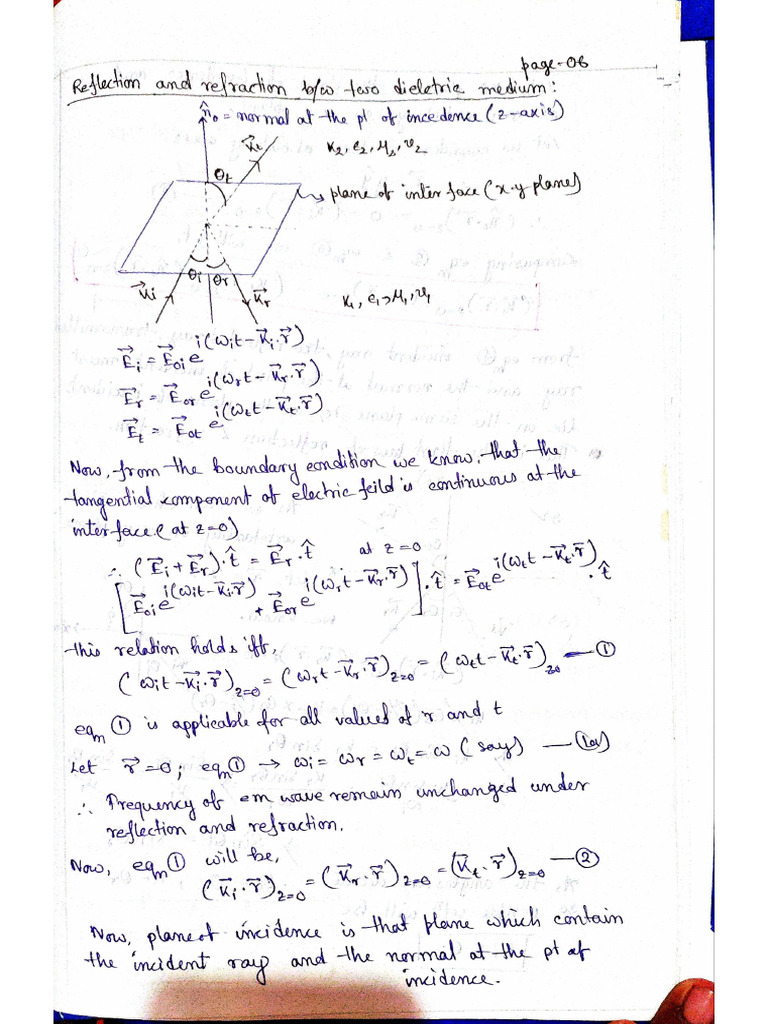 page-06
Reflection and refraction b/w two dieletric medium:
n̂₀ = normal at the pt of incedence (z-axis)
K⃗t
K₂, ϵ₂, μ₂, v₂
θt
plane of interface (x-y plane)
θi θr
K⃗i K⃗r
K₁, ϵ₁, μ₁, v₁
E⃗i = E⃗oi e^i(ωit - K⃗i.r⃗)
E⃗r = E⃗or e^i(ωrt - K⃗r.r⃗)
E⃗t = E⃗ot e^i(ωtt - K⃗t.r⃗)
Now, from the boundary condition we know, that the
tangential component of electric feild is continuous at the
interface (at z=0)
∴ (E⃗i + E⃗r).t̂ = E⃗r.t̂ at z=0
[E⃗oi e^i(ωit - K⃗i.r⃗) + E⃗or e^i(ωrt - K⃗r.r⃗)].t̂ = E⃗ot e^i(ωtt - K⃗t.r⃗).t̂
this relation holds iff,
(ωit - K⃗i.r⃗)z=0 = (ωrt - K⃗r.r⃗)z=0 = (ωtt - K⃗t.r⃗)z0 — ①
eqm ① is applicable for all values of r and t
Let r⃗ = 0; eqm① → ωi = ωr = ωt = ω (say) — (1a)
∴ Frequency of em wave remain unchanged under
reflection and refraction.
Now, eqm ① will be,
(K⃗i.r⃗)z=0 = (K⃗r.r⃗)z=0 = (K⃗t.r⃗)z=0 — ②
Now, plane of incidence is that plane which contain
the incident ray and the normal at the pt of
incidence.